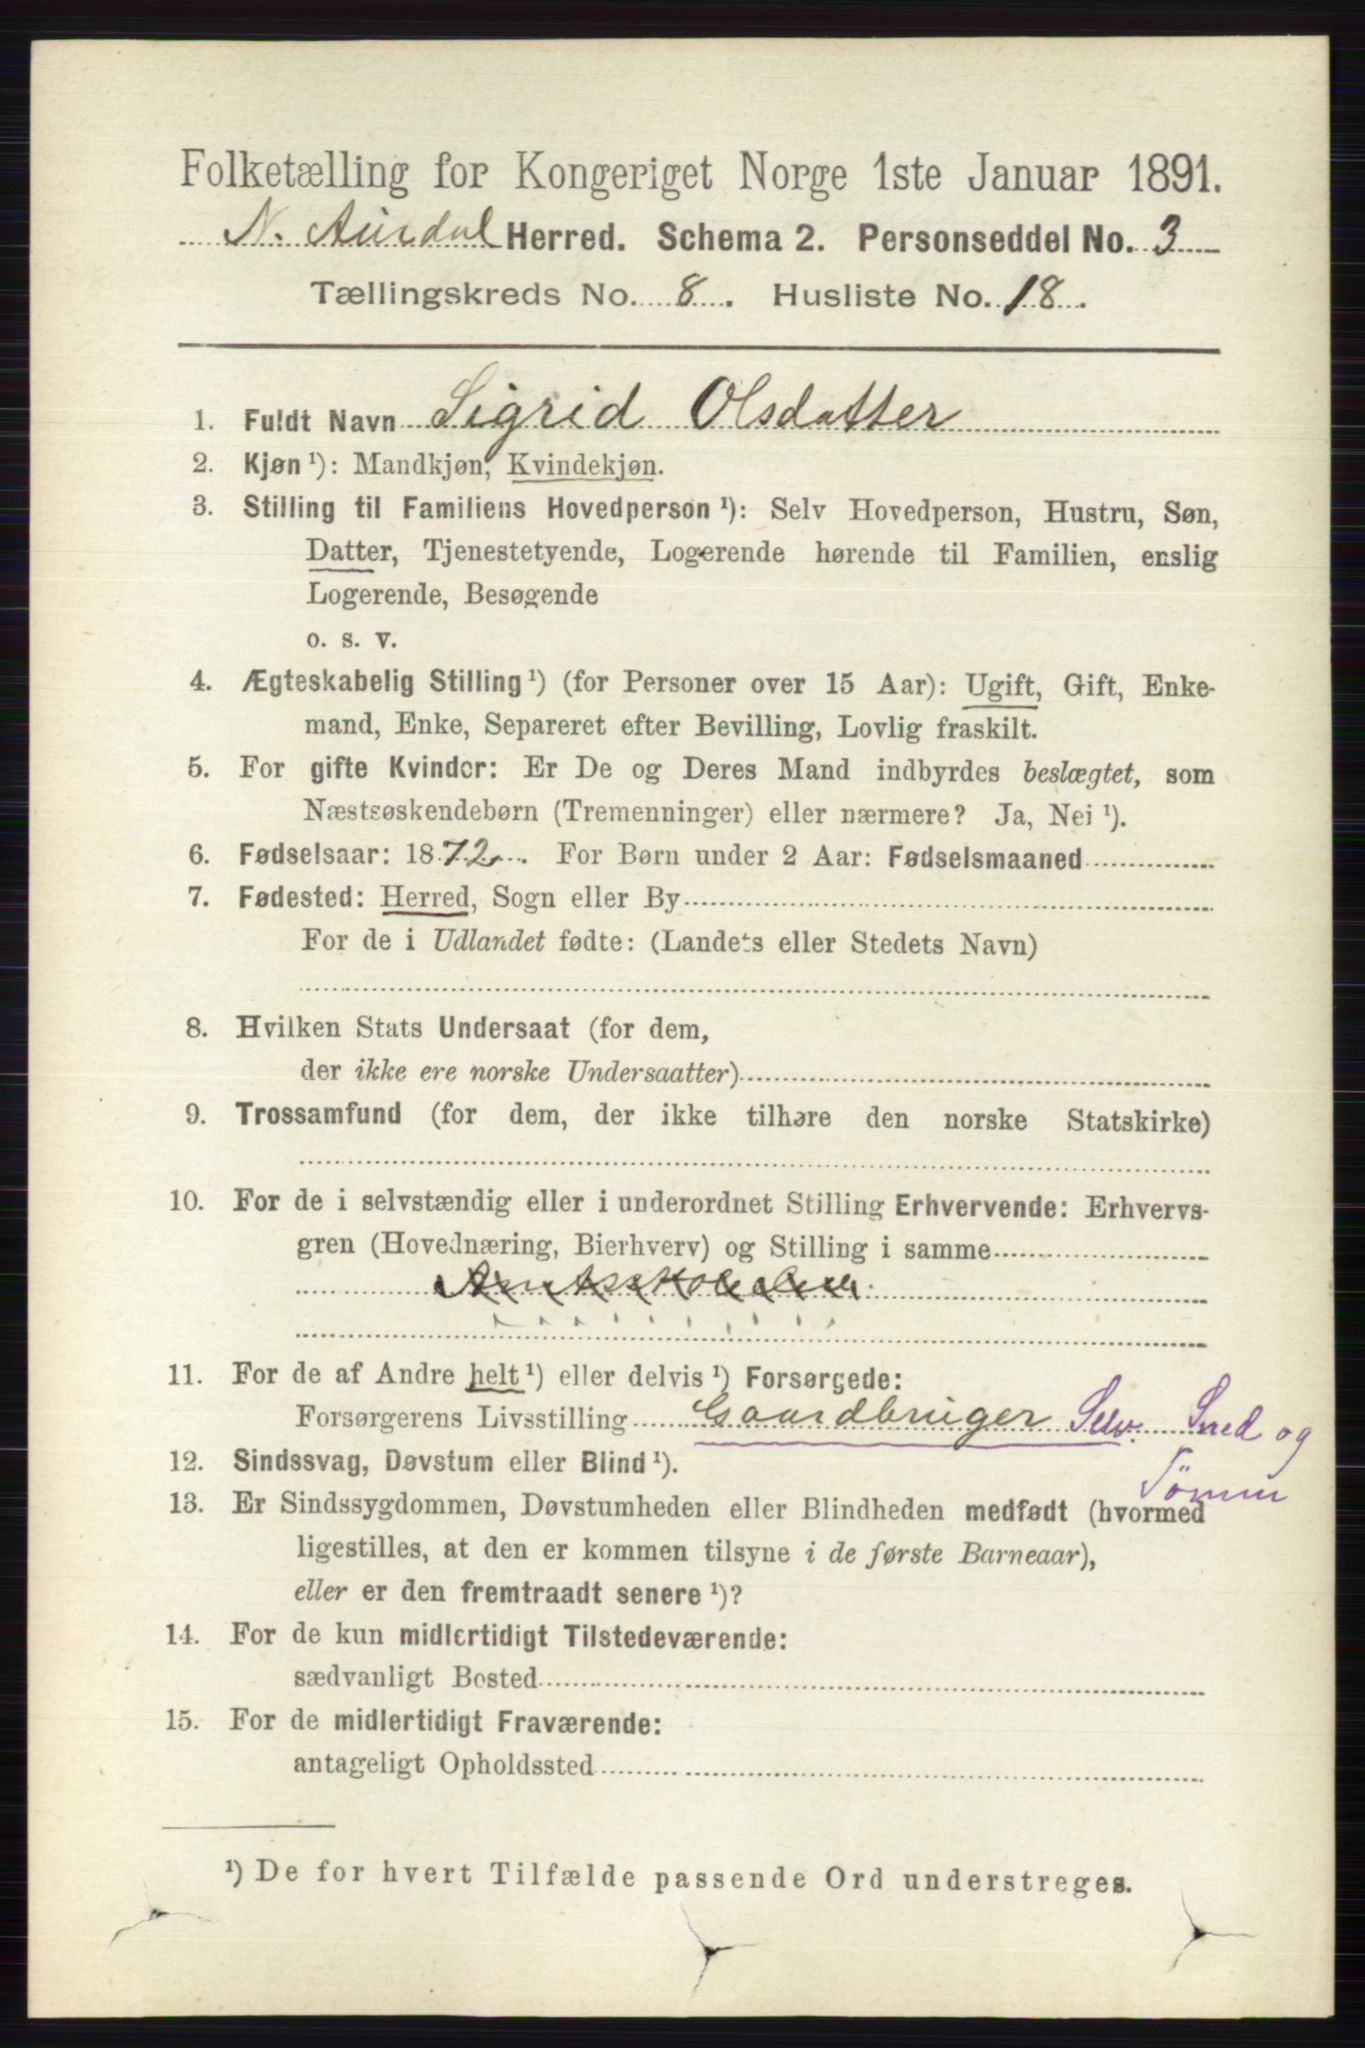 Folketælling for Kongeriget Norge 1ste Januar 1891.
N. Aurdal Herred. Schema 2. Personseddel No. 3
Tællingskreds No. 8. Husliste No. 18.
1. Fuldt Navn Sigrid Olsdatter
2. Kjøn ¹): Mandkjøn, Kvindekjøn.
3. Stilling til Familiens Hovedperson ¹): Selv Hovedperson, Hustru, Søn,
Datter, Tjenestetyende, Logerende hørende til Familien, enslig
Logerende, Besøgende
o. s. v.
4. Ægteskabelig Stilling ¹) (for Personer over 15 Aar): Ugift, Gift, Enke-
mand, Enke, Separeret efter Bevilling, Lovlig fraskilt.
5. For gifte Kvinder: Er De og Deres Mand indbyrdes beslægtet, som
Næstsøskendebørn (Tremenninger) eller nærmere? Ja, Nei ¹).
6. Fødselsaar: 1872. For Børn under 2 Aar: Fødselsmaaned
7. Fødested: Herred, Sogn eller By
For de i Udlandet fødte: (Landets eller Stedets Navn)
8. Hvilken Stats Undersaat (for dem,
der ikke ere norske Undersaatter)
9. Trossamfund (for dem, der ikke tilhøre den norske Statskirke)
10. For de i selvstændig eller i underordnet Stilling Erhvervende: Erhvervs-
gren (Hovednæring, Bierhverv) og Stilling i samme
11. For de af Andre helt ¹) eller delvis ¹) Forsørgede:
Forsørgerens Livsstilling Gaardbruger Selv. Smed og
12. Sindssvag, Døvstum eller Blind ¹).
13. Er Sindssygdommen, Døvstumheden eller Blindheden medfødt (hvormed
ligestilles, at den er kommen tilsyne i de første Barneaar),
eller er den fremtraadt senere ¹)?
14. For de kun midlertidigt Tilstedeværende:
sædvanligt Bosted
15. For de midlertidigt Fraværende:
antageligt Opholdssted
¹) De for hvert Tilfælde passende Ord understreges.